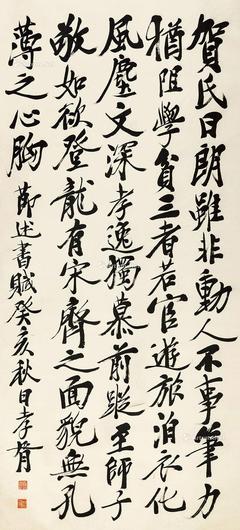 賀氏曰朗雖非動人不事筆力
猶阻學貧三者若官遊旅泊衣化
風塵文深孝逸獨慕前蹤王師子
敬如欲登龍有宋齊之面貌無孔
薄之心胸
節述書賦癸亥秋日孝胥